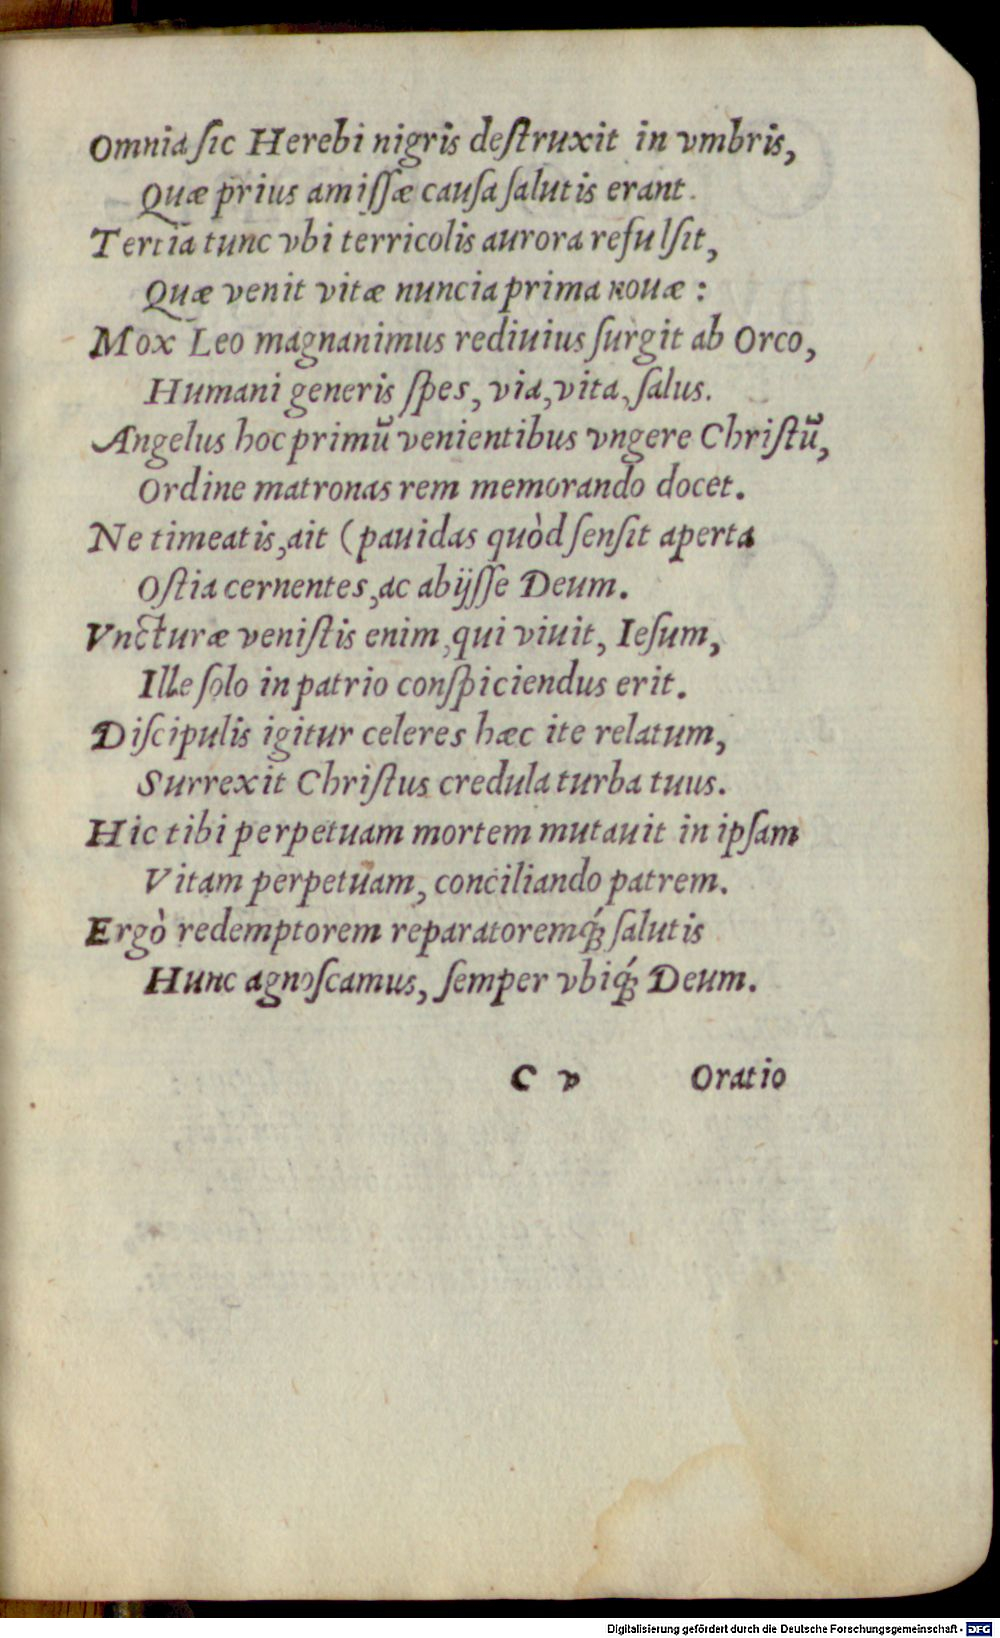 Omnia ſic Herebi nigris deſtruxit in vmbris,
Quæ prius amiſſæ cauſa ſalutis erant.
Tertia tunc vbi terricolis aurora refulſit,
Quæ venit vitæ nuncia prima nouæ:
Mox Leo magnanimus rediuius ſurgit ab Orco,
Humani generis ſpes, via, vita, ſalus.
Angelus hoc primũ venientibus vngere Chriſtũ,
Ordine matronas rem memorando docet.
Ne timeatis, ait (pauidas quòd ſenſit aperta
Oſtia cernentes, ac abijſſe Deum.
Vncturæ veniſtis enim, qui viuit, Ieſum,
Ille ſolo in patrio conſpiciendus erit.
Diſcipulis igitur celeres hæc ite relatum,
Surrexit Chriſtus credula turba tuus.
Hic tibi perpetuam mortem mutauit in ipſam
Vitam perpetuam, conciliando patrem.
Ergò redemptorem reparatoremq́; ſalutis
Hunc agnoſcamus, ſemper vbiq́; Deum.
C v Oratio
Digitalisierung gefördert durch die Deutsche Forschungsgemeinschaft - DFG